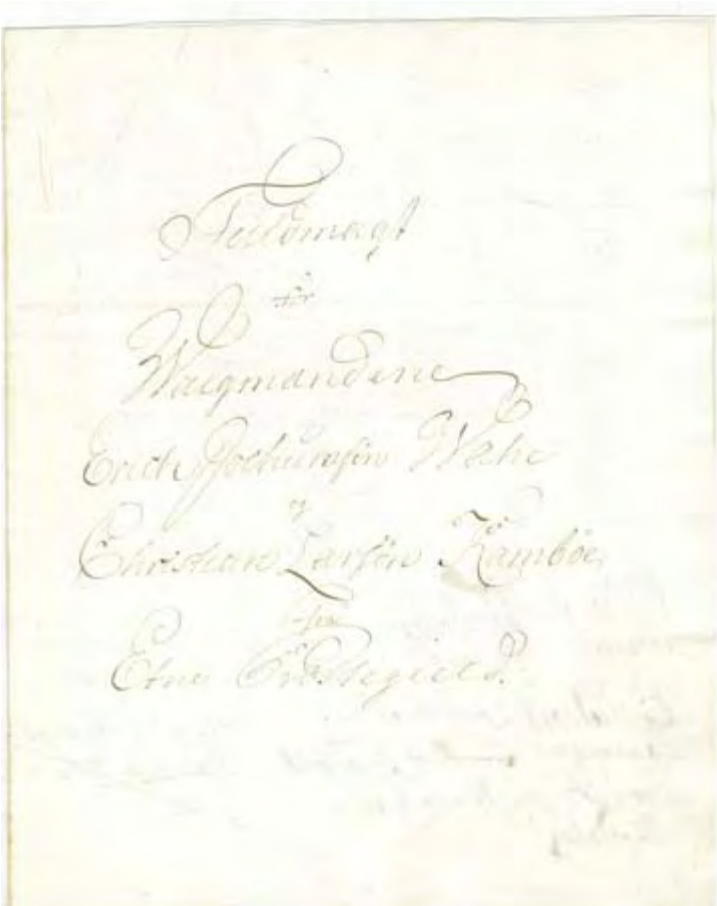 Fuldmagt
for
Walgmændene
Erich Jochumsøn Wæhe
og
Christian Larsøn Rambøe
fra
Etne Præstegield.